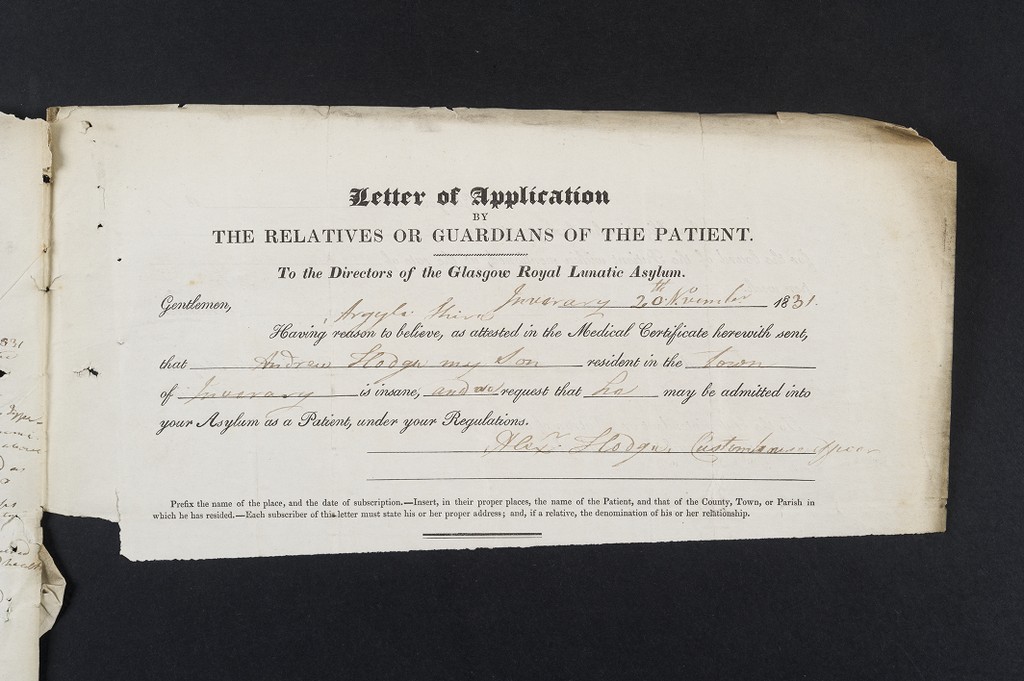 Letter of Application
BY
THE RELATIVES OR GUARDIANS OF THE PATIENT.
To the Directors of the Glasgow Royal Lunatic Asylum.
Inverary 20th November 1831.
Gentlemen,
Argyle Shire
Having reason to believe, as attested in the Medical Certificate herewith sent,
that Andrew Hodge my Son resident in the town
of Inverary is insane, and request that he may be admitted into
your Asylum as a Patient, under your Regulations.
Alexr. Hodge, Customhouse officer
Prefix the name of the place, and the date of subscription.—Insert, in their proper places, the name of the Patient, and that of the County, Town, or Parish in
which he has resided.—Each subscriber of this letter must state his or her proper address; and, if a relative, the denomination of his or her relationship.